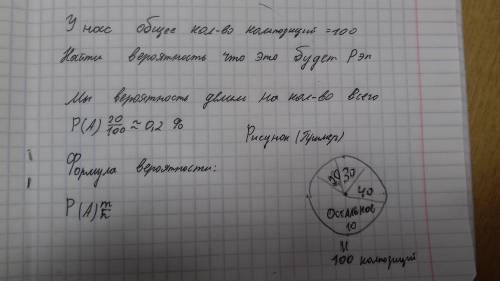 У нас общее кол-во композиций =100
Найти вероятность что это будет Рэп
Мы вероятность делим на кол-во всего
P(A) 20/100 ≈ 0,2 %
Рисунок (Пример)
Формула вероятности:
P(A) m/n
20 30
40
Остальное
10
100 композиций